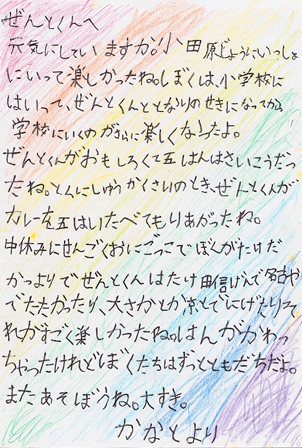 ぜんとくんへ
元気にしていますか。小田原じょうにいっしょ
にいって楽しかったね。ぼくは、小学校に
はいって、ぜんとくんととなりのせきになってから
学校にいくのがさらに楽しくなったよ。
ぜんとくんがおもしろくて五はんはさいこうだっ
たね。とくにしゅうがくさいのとき、ぜんとくんが
カレーを五はいたべてもりあがったね。
中休みにせんごくおにごっこでぼくがたけだ
かつよりでぜんとくんはたけ田信げんで名古や
でたたかったり、大さかとか京とでにげたりそ
れがすごく楽しかったね。はんがかわっ
ちゃったけれどぼくたちはずっとともだちだよ。
またあそぼうね。大すき。
かなとより